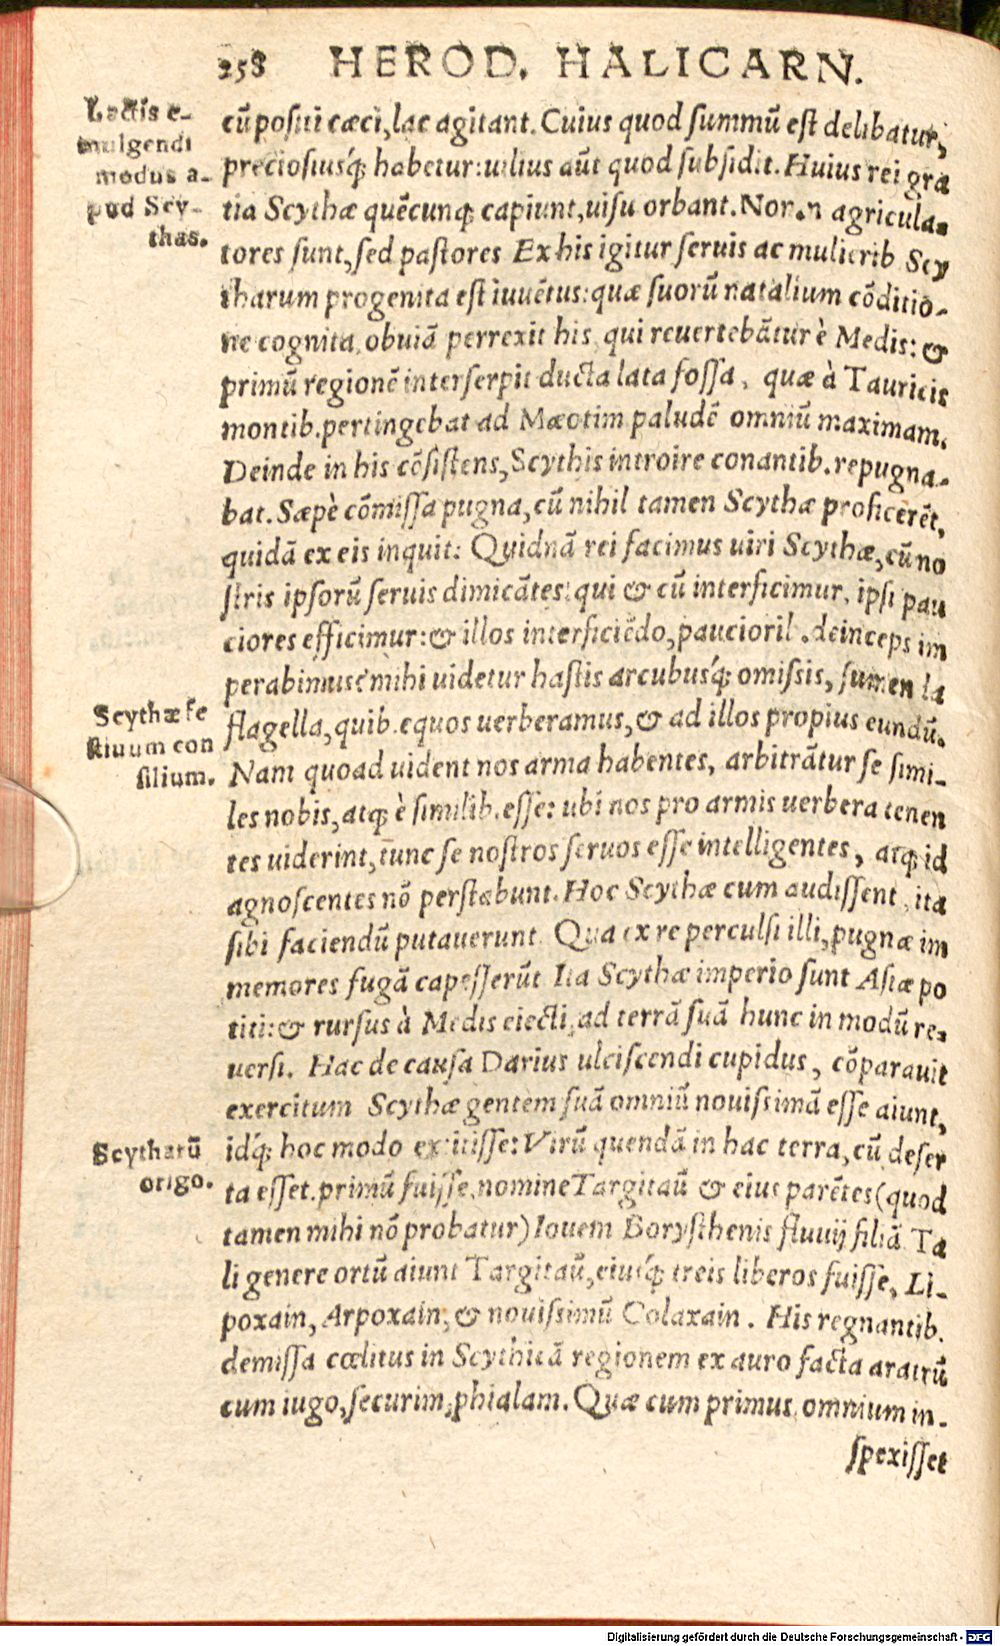 258 HEROD. HALICARN.
Lactis e-
mulgendi
modus a-
pud Scy-
thas.
cũ positi cæci, lac agitant. Cuius quod summũ est delibatur,
preciosiusq́; habetur: uilius aũt quod subsidit. Huius rei gra
tia Scythæ quẽcunq; capiunt, uisu orbant. Non agricula-
tores sunt, sed pastores Ex his igitur seruis ac mulierib Scy
tharum progenita est iuuẽtus: quæ suorũ natalium cõditio-
ne cognita, obuiã perrexit his qui reuertebãtur è Medis: &
primũ regionẽ interserpit ducta lata fossa, quæ à Tauricis
montib. pertingebat ad Mæotim paludẽ omniũ maximam.
Deinde in his cõsistens, Scythis introire conantib. repugna-
bat. Sæpè cõmissa pugna, cũ nihil tamen Scythæ proficerẽt,
quidã ex eis inquit: Quidnã rei facimus uiri Scythæ, cũ no
stris ipsorũ seruis dimicãtes: qui & cũ interficimur, ipsi pau
ciores efficimur: & illos interficiẽdo, pauciorib. deinceps im
perabimus: mihi uidetur hastis arcubusq́; omissis, sumen la
Scythæ fe
stiuum con
silium.
flagella, quib. equos uerberamus, & ad illos propius eundũ.
Nam quoad uident nos arma habentes, arbitrãtur se simi-
les nobis, atq; è similib. esse: ubi nos pro armis uerbera tenen
tes uiderint, tunc se nostros seruos esse intelligentes, atq; id
agnoscentes nõ perstabunt. Hoc Scythæ cum audissent, ita
sibi faciendũ putauerunt. Qua ex re perculsi illi, pugnæ im
memores fugã capesserũt Ita Scythæ imperio sunt Asiæ po
titi: & rursus à Medis eiecti, ad terrã suã hunc in modũ re-
uersi. Hac de causa Darius ulciscendi cupidus, cõparauit
exercitum Scythæ gentem suã omniũ nouissimã esse aiunt,
Scytharũ
origo.
idq́; hoc modo extitisse: Virũ quendã in hac terra, cũ deser
ta esset, primũ fuisse, nomine Targitaũ & eius parẽtes (quod
tamen mihi nõ probatur) Iouem Borysthenis fluuij filiã Ta
li genere ortũ aiunt Targitaũ, eiusq́; treis liberos fuisse, Li-
poxain, Arpoxain, & nouissimũ Colaxain. His regnantib.
demissa cœlitus in Scythicã regionem ex auro facta aratrũ
cum iugo, securim, phialam. Quæ cum primus omnium in-
spexisset
Digitalisierung gefördert durch die Deutsche Forschungsgemeinschaft - DFG